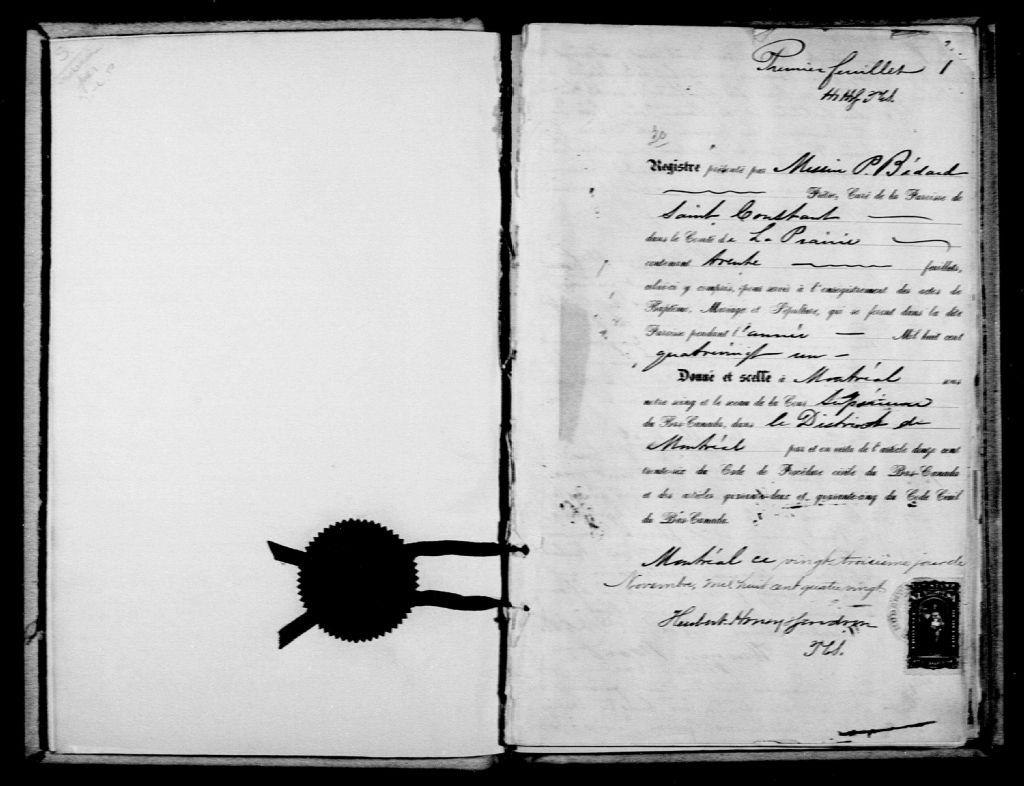 Premier feuillet 1
30
Registre présenté par Messire P. Bédard
Prêtre, Curé de la Paroisse de
Saint Constant
dans le Comté de La Prairie
contenant trente feuillets,
celui-ci y compris, pour servir à l'enregistrement des actes de
Baptême, Mariage et Sépulture, qui se feront dans la dite
Paroisse pendant l'année Mil huit cent
quatrevingt un
Donné et scellé à Montréal sous
notre seing et le sceau de la Cour Supérieure
du Bas-Canada, dans le District de
Montréal par et en vertu de l'article douze cent
trente-six du Code de Procédure civile du Bas-Canada
et des articles quarante-deux et quarante-cinq du Code Civil
du Bas-Canada.
Montréal ce vingt troisième jour de
Novembre, mil huit cent quatre vingt
Hubert Honey Gendron